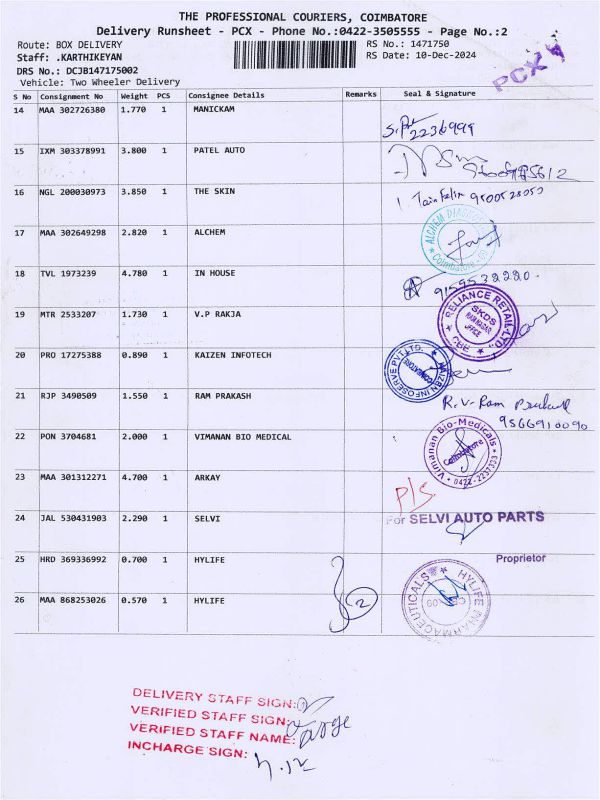 THE PROFESSIONAL COURIERS, COIMBATORE
Delivery Runsheet - PCX - Phone No.:0422-3505555 - Page No.:2
Route: BOX DELIVERY
RS No.: 1471750
Staff: .KARTHIKEYAN
RS Date: 10-Dec-2024
DRS No.: DCJB147175002
PCX
Vehicle: Two Wheeler Delivery
S No Consignment No Weight PCS Consignee Details Remarks Seal & Signature
14 MAA 302726380 1.770 1 MANICKAM
2236999
15 IXM 303378991 3.800 1 PATEL AUTO
16 NGL 200030973 3.850 1 THE SKIN
9500528050
17 MAA 302649298 2.820 1 ALCHEM
ALCHEM Coimbatore
18 TVL 1973239 4.780 1 IN HOUSE
9159532220.
19 MTR 2533207 1.730 1 V.P RAKJA
RELIANCE RETAIL LTD SKDS RAM NAGAR OFFICE CBE
20 PRO 17275388 0.890 1 KAIZEN INFOTECH
KAIZEN INFOSERVE PVT.LTD. COIMBATORE
21 RJP 3490509 1.550 1 RAM PRAKASH
R.V. Ram
9566910090
22 PON 3704681 2.000 1 VIMANAN BIO MEDICAL
Vimanan Bio-Medicals Coimbatore 0422-2237333
23 MAA 301312271 4.700 1 ARKAY
P/S
24 JAL 530431903 2.290 1 SELVI
For SELVI AUTO PARTS
25 HRD 369336992 0.700 1 HYLIFE
Proprietor
26 MAA 868253026 0.570 1 HYLIFE
2
HYLIFE PHARMACEUTICALS
DELIVERY STAFF SIGN:
VERIFIED STAFF SIGN:
VERIFIED STAFF NAME:
INCHARGE SIGN: